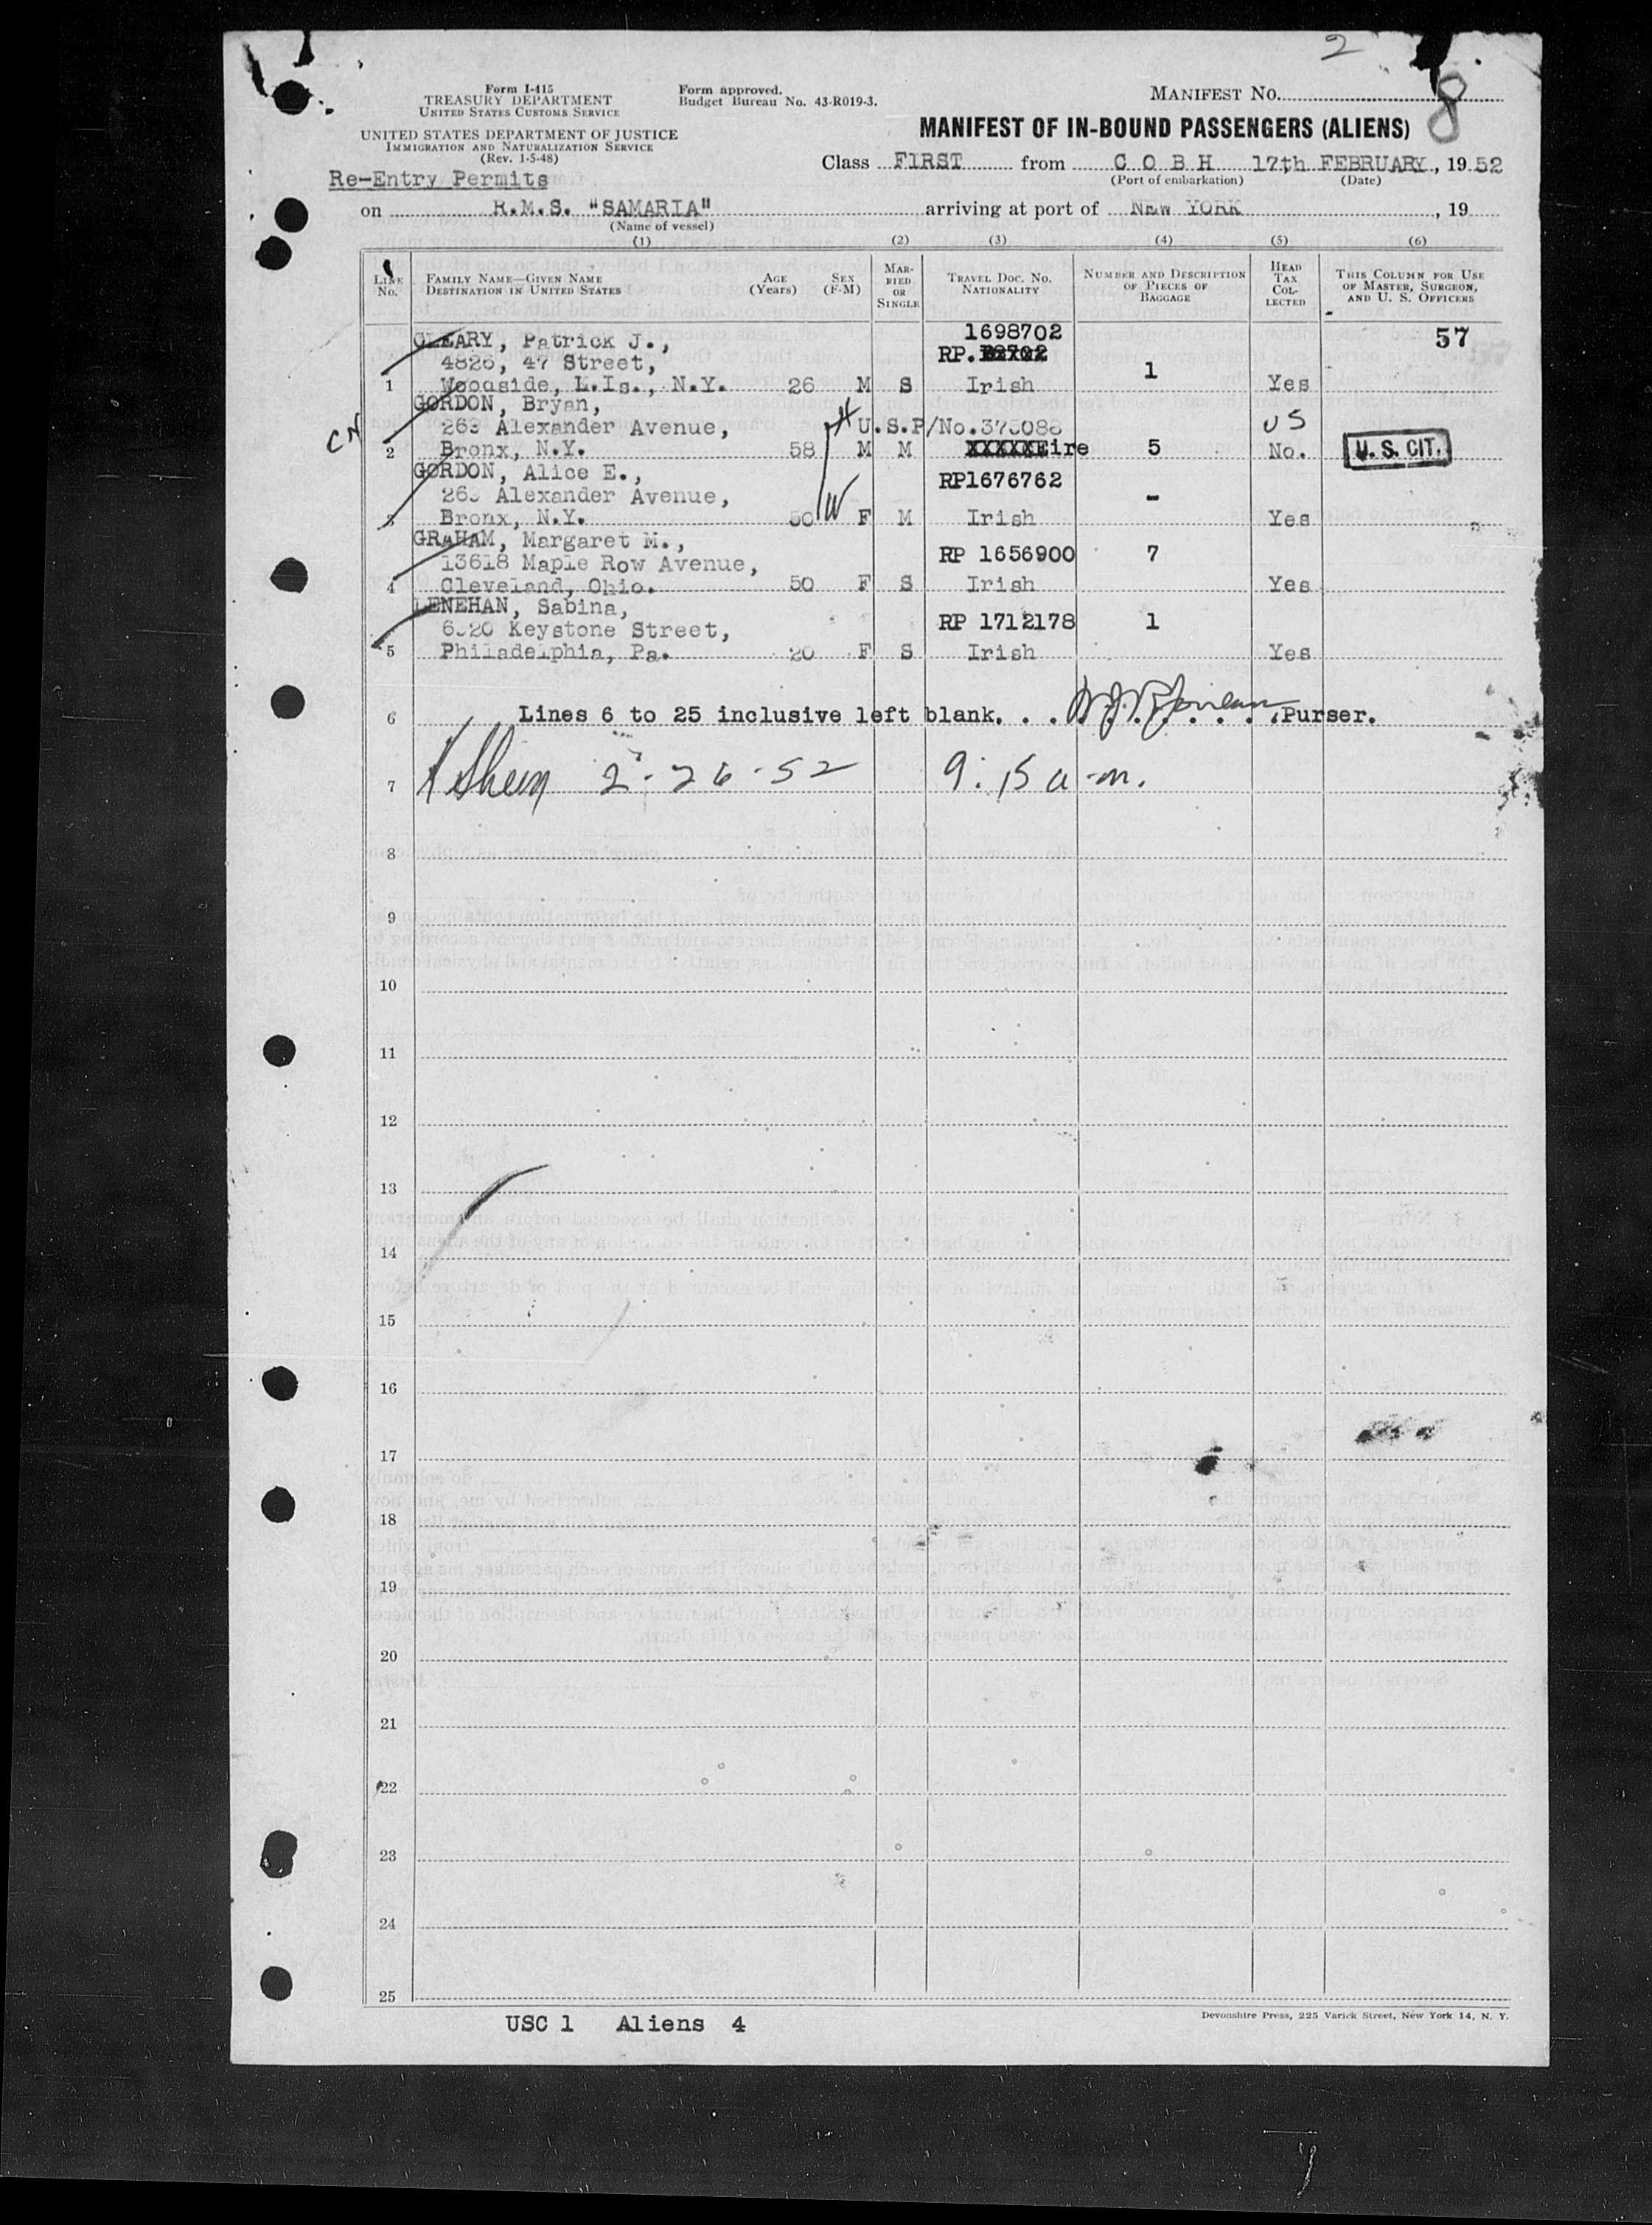 2
8
Form I-415
TREASURY DEPARTMENT
UNITED STATES CUSTOMS SERVICE
UNITED STATES DEPARTMENT OF JUSTICE
IMMIGRATION AND NATURALIZATION SERVICE
(Rev. 1-5-48)
Form approved.
Budget Bureau No. 43-R019-3.
MANIFEST NO.
MANIFEST OF IN-BOUND PASSENGERS (ALIENS)
Class FIRST from C O B H 17th FEBRUARY, 1952
(Port of embarkation) (Date)
Re-Entry Permits
on R.M.S. "SAMARIA" arriving at port of NEW YORK, 19
(Name of vessel)
(1) (2) (3) (4) (5) (6)
LINE No. FAMILY NAME—GIVEN NAME DESTINATION IN UNITED STATES AGE (Years) SEX (F-M) MARRIED OR SINGLE TRAVEL DOC. NO. NATIONALITY NUMBER AND DESCRIPTION OF PIECES OF BAGGAGE HEAD TAX COLLECTED THIS COLUMN FOR USE OF MASTER, SURGEON, AND U. S. OFFICERS
CLEARY, Patrick J., 1698702 57
4826, 47 Street, RP. 1
1 Woodside, L.Is., N.Y. 26 M S Irish Yes
GORDON, Bryan, H
CN 263 Alexander Avenue, U.S.P/No. US
2 Bronx, N.Y. 58 M M XXXXXEire 5 No. U. S. CIT.
GORDON, Alice E., RP1676762
Alexander Avenue, W -
3 Bronx, N.Y. 50 F M Irish Yes
GRAHAM, Margaret M.,
13618 Maple Row Avenue, RP 1656900 7
4 Cleveland, Ohio. 50 F S Irish Yes
LENEHAN, Sabina,
Keystone Street, RP 1712178 1
5 Philadelphia, Pa. 20 F S Irish Yes
6 Lines 6 to 25 inclusive left blank. . . . . . . . . .Purser.
7 2-26-52 9:15 a.m.
8
9
10
11
12
13
14
15
16
17
18
19
20
21
22
23
24
25
USC 1 Aliens 4
Devonshire Press, 225 Varick Street, New York 14, N. Y.